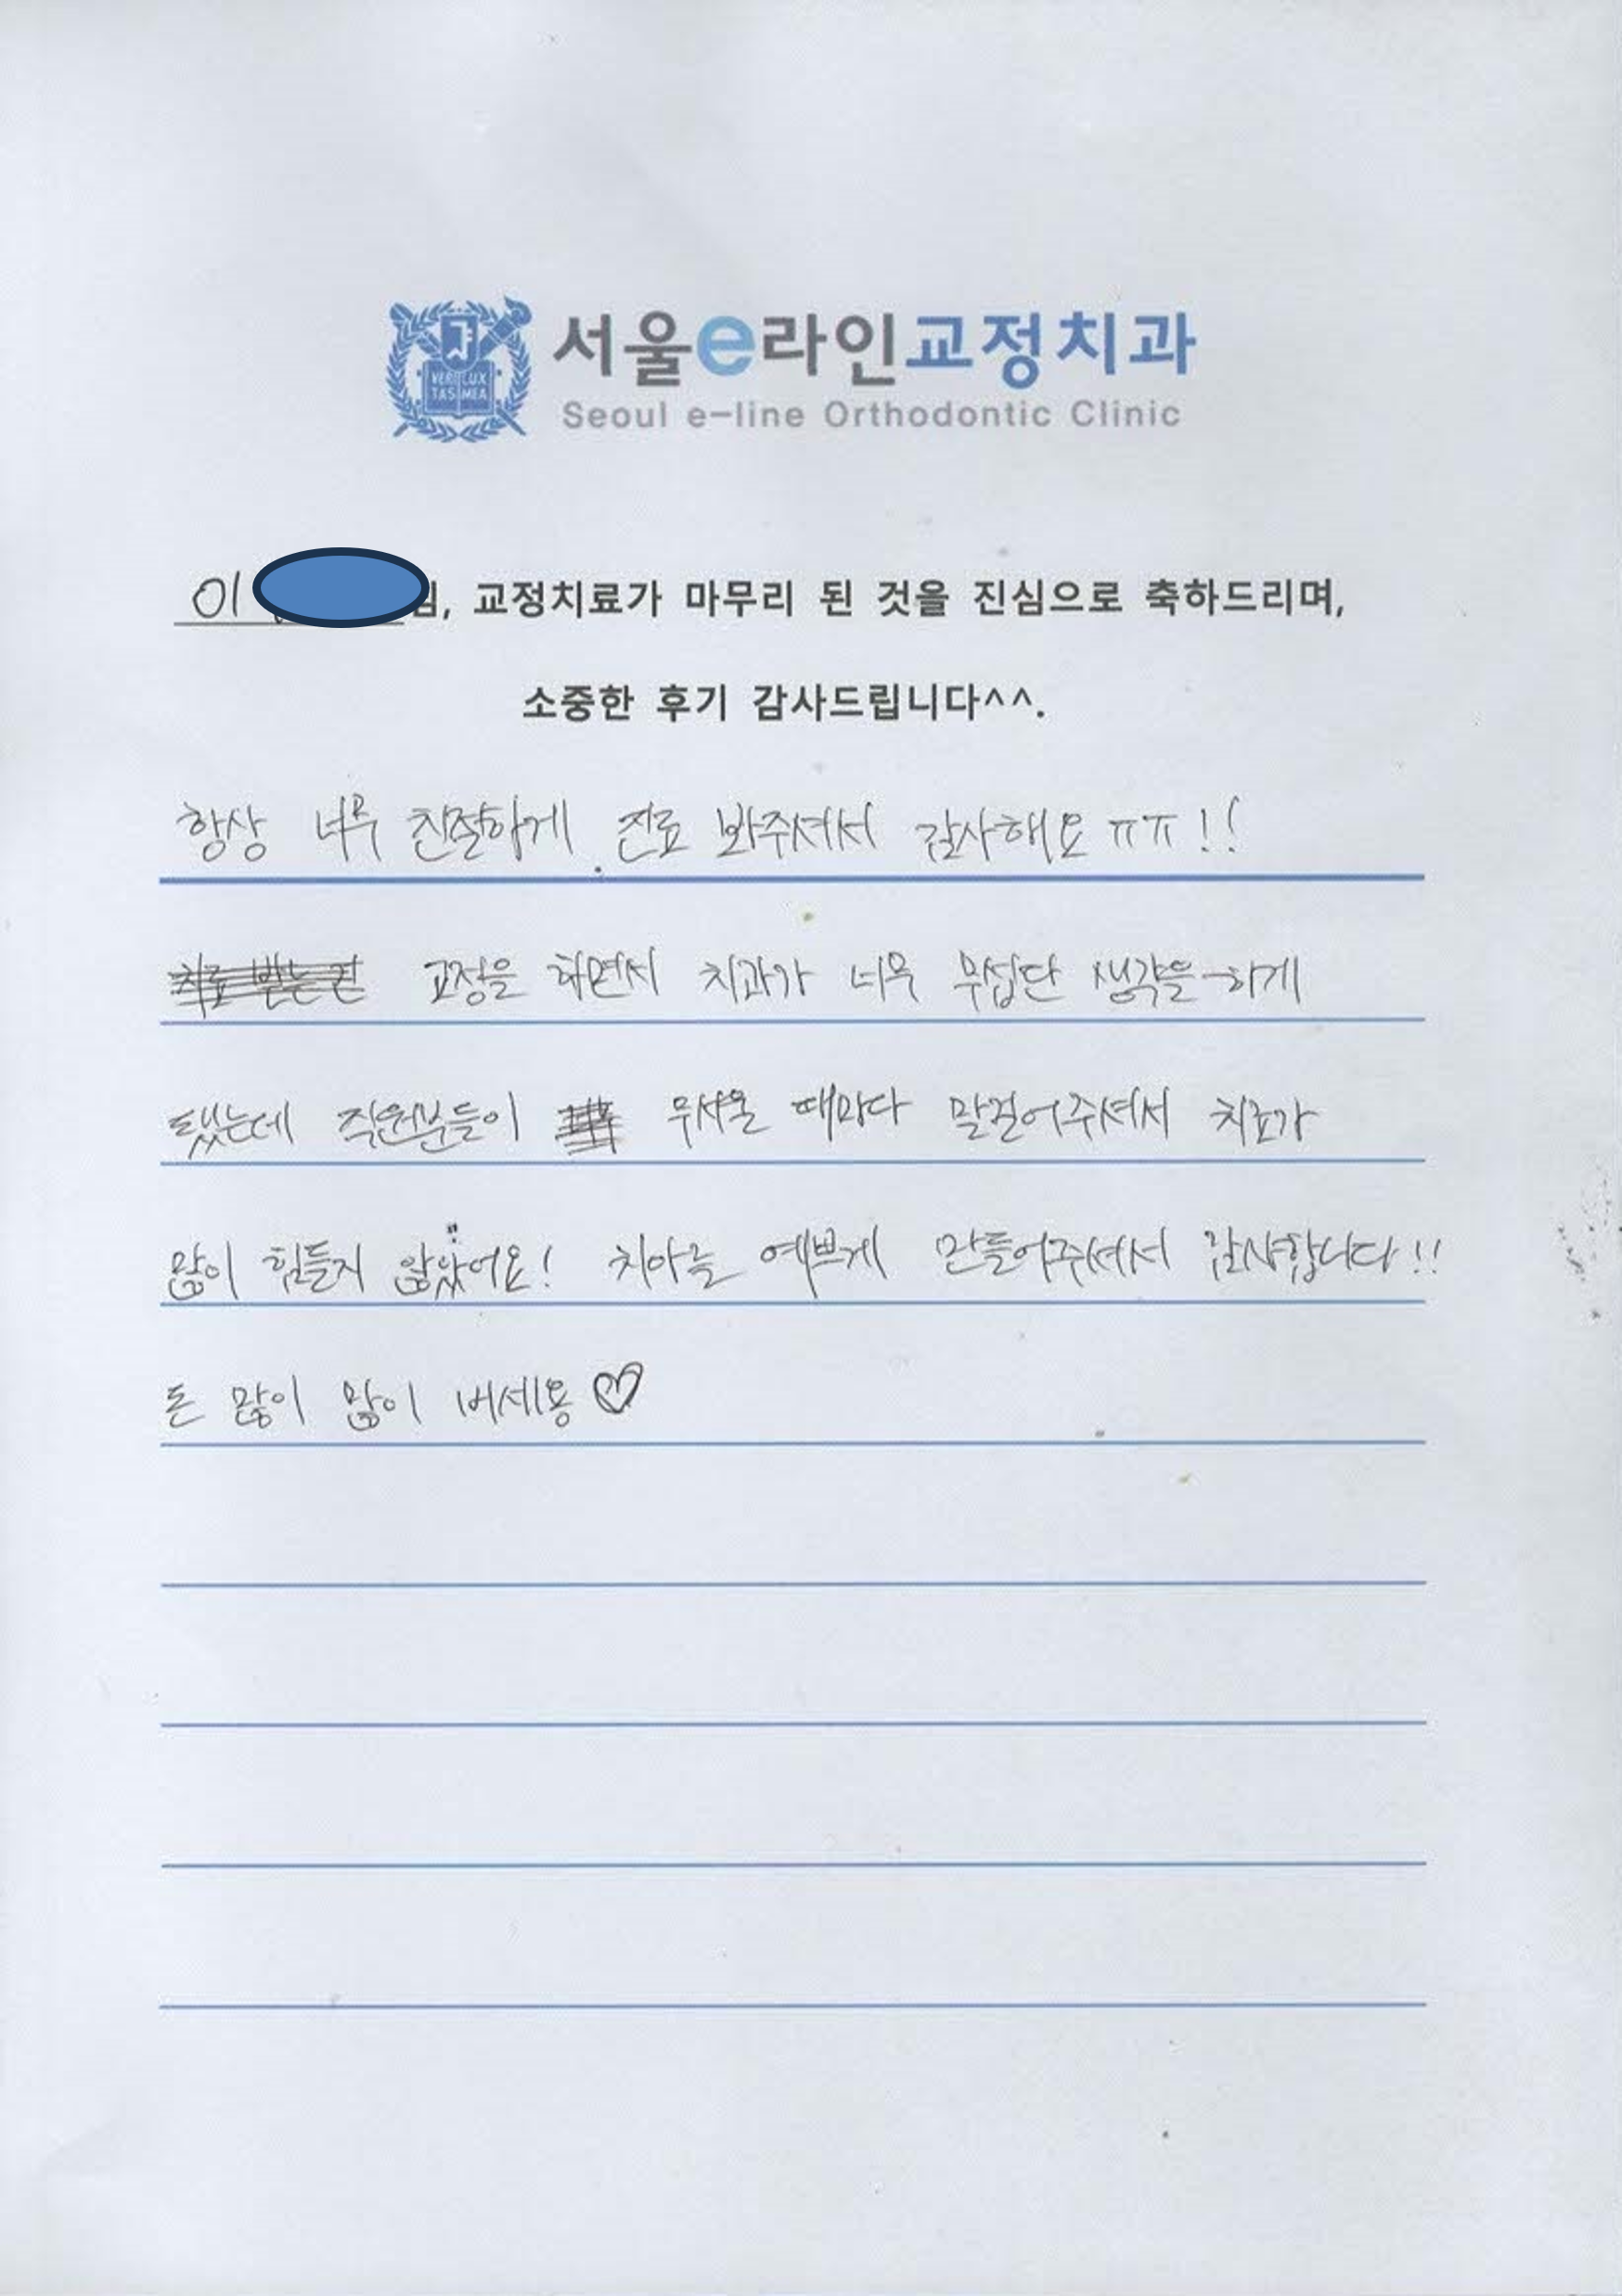 VERI LUX
TAS MEA
서울e라인교정치과
Seoul e-line Orthodontic Clinic
이 님, 교정치료가 마무리 된 것을 진심으로 축하드리며,
소중한 후기 감사드립니다^^.
항상 너무 친절하게 진료 봐주셔서 감사해요 ㅠㅠ!!
치료 받는건 교정을 하면서 치과가 너무 무섭단 생각을 하게
됐는데 직원분들이 무서울 때마다 말걸어주셔서 치료가
많이 힘들지 않았어요! 치아를 예쁘게 만들어주셔서 감사합니다!!
돈 많이 많이 버세용♡